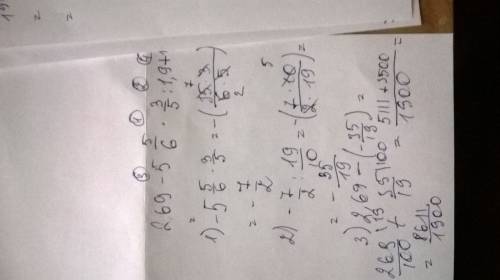 ③ ① ② ④
2,69 - 5 5/6 · 3/5 : 1,9 + 1
1) - 5 5/6 · 3/5 = -(35 · 3 / 6 · 5) =
= - 7/2
2) - 7/2 : 19/10 = -(7 · 10 / 2 · 19) =
= - 35/19
3) 2,69 - (- 35/19) =
269/100 + 35/19 = 5111 + 3500 / 1900 =
= 8611/1900